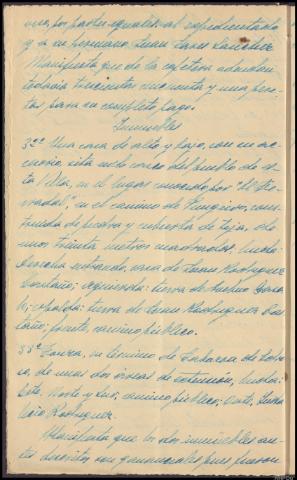 por partes iguales al expedientado
y a su hermano, Juan Lavi Sanchez
Manifiesta que de la cafetera adeudan
todavia trescientas cincuenta y una pese-
tas para su completo pago.
Inmuebles
32ª Una casa de alto y bajo, con su ac-
cesorio, sita en lo casco del pueblo de es-
ta Villa, en el lugar conocido por "El
en el camino de Fungiroso, cons-
truida de piedra y cubierta de teja, de
unos treinta metros cuadrados, linda:
derecha entrando, casa de Juan Rodriguez
izquierda: tierra de
espalda: tierra de Juan Rodriguez
frente, camino público.
33ª en término de
de unas dos áreas de extensión, linda:
Este, Norte y Sur, camino público; Oeste,
Rodriguez.
Manifiesta que los dos inmuebles an-
tes descritos son gananciales pues fueron